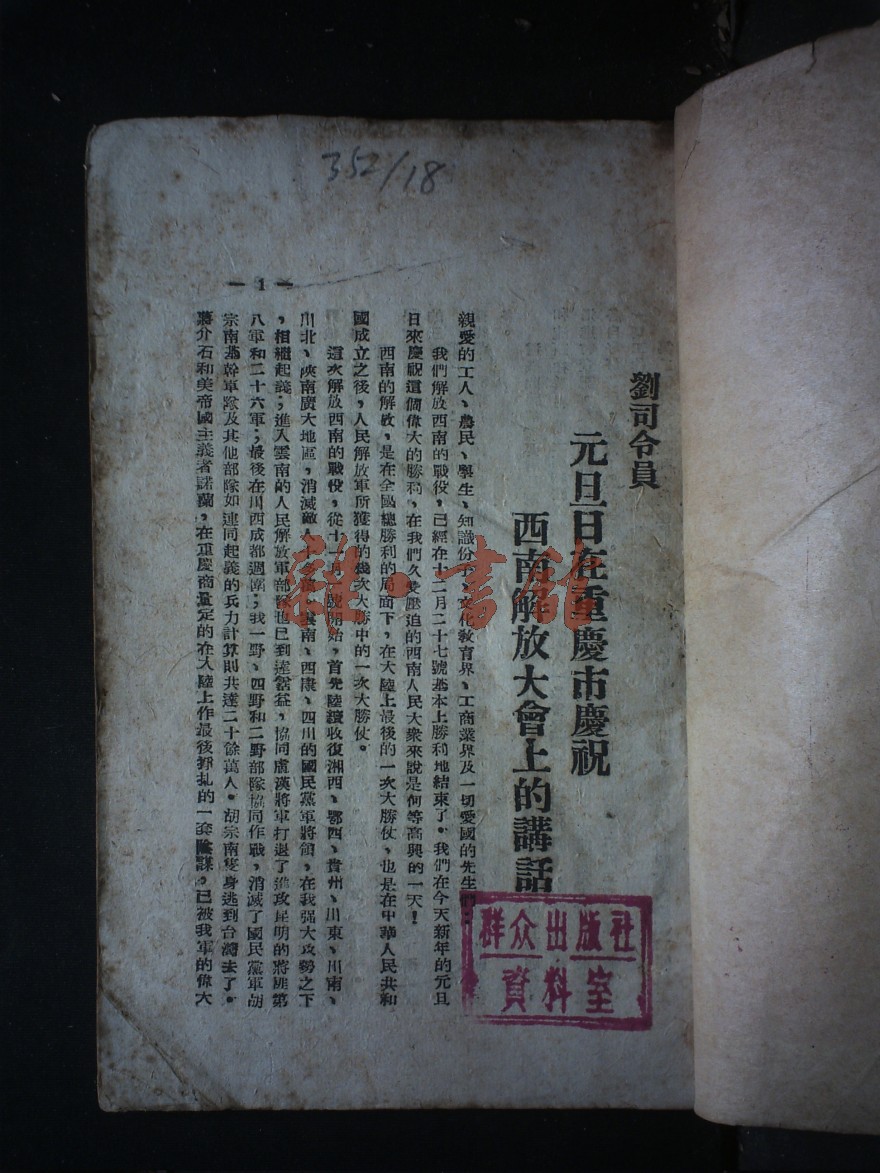 352/18
劉司令員
元旦日在重慶市慶祝
西南解放大會上的講話
親愛的工人、農民、學生、知識份子、文化教育界、工商業界及一切愛國的先生們：
我們解放西南的戰役，已經在十二月二十七號基本上勝利地結束了。我們在今天新年的元旦
日來慶祝這個偉大的勝利，在我們久受壓迫的西南人民大衆來說是何等高興的一天！
西南的解放，是在全國總勝利的局面下，在大陸上最後的一次大勝仗，也是在中華人民共和
國成立之後，人民解放軍所獲得的幾次大勝中的一次大勝仗。
這次解放西南的戰役，從十一月一號開始，首先陸續收復湘西、鄂西、貴州、川東、川南、
川北、陝南廣大地區，消滅敵人十萬，雲南、西康、四川的國民黨軍將領，在我强大攻勢之下
，相繼起義；進入雲南的人民解放軍部隊也已到達霑益，協同盧漢將軍打退了進攻昆明的蔣匪第
八軍和二十六軍；最後在川西成都週圍，我一野、四野和二野部隊協同作戰，消滅了國民黨軍胡
宗南基幹軍隊及其他部隊如連同起義的兵力計算則共達二十餘萬人。胡宗南隻身逃到台灣去了。
蔣介石和美帝國主義者諾蘭，在重慶商量定的在大陸上作最後掙扎的一套陰謀，已被我軍的偉大
— 1 —
群众出版社
資料室
雜·書館